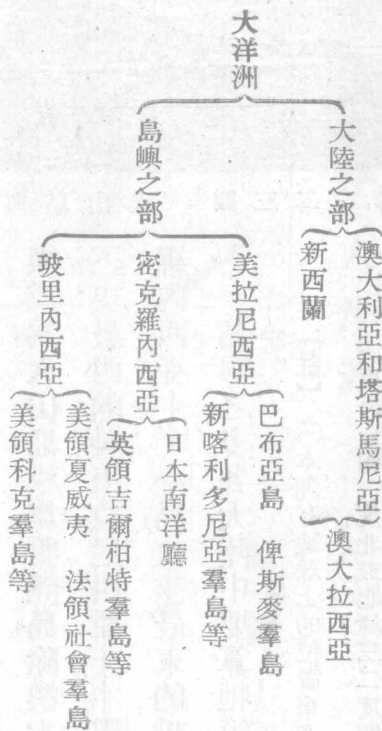 大洋洲
大陸之部
澳大利亞和塔斯馬尼亞
新西蘭
澳大拉西亞
島嶼之部
美拉尼西亞
巴布亞島 俾斯麥羣島
新喀利多尼亞羣島等
密克羅內西亞
日本南洋廳
英領吉爾柏特羣島等
玻里內西亞
美領夏威夷 法領社會羣島
美領科克羣島等